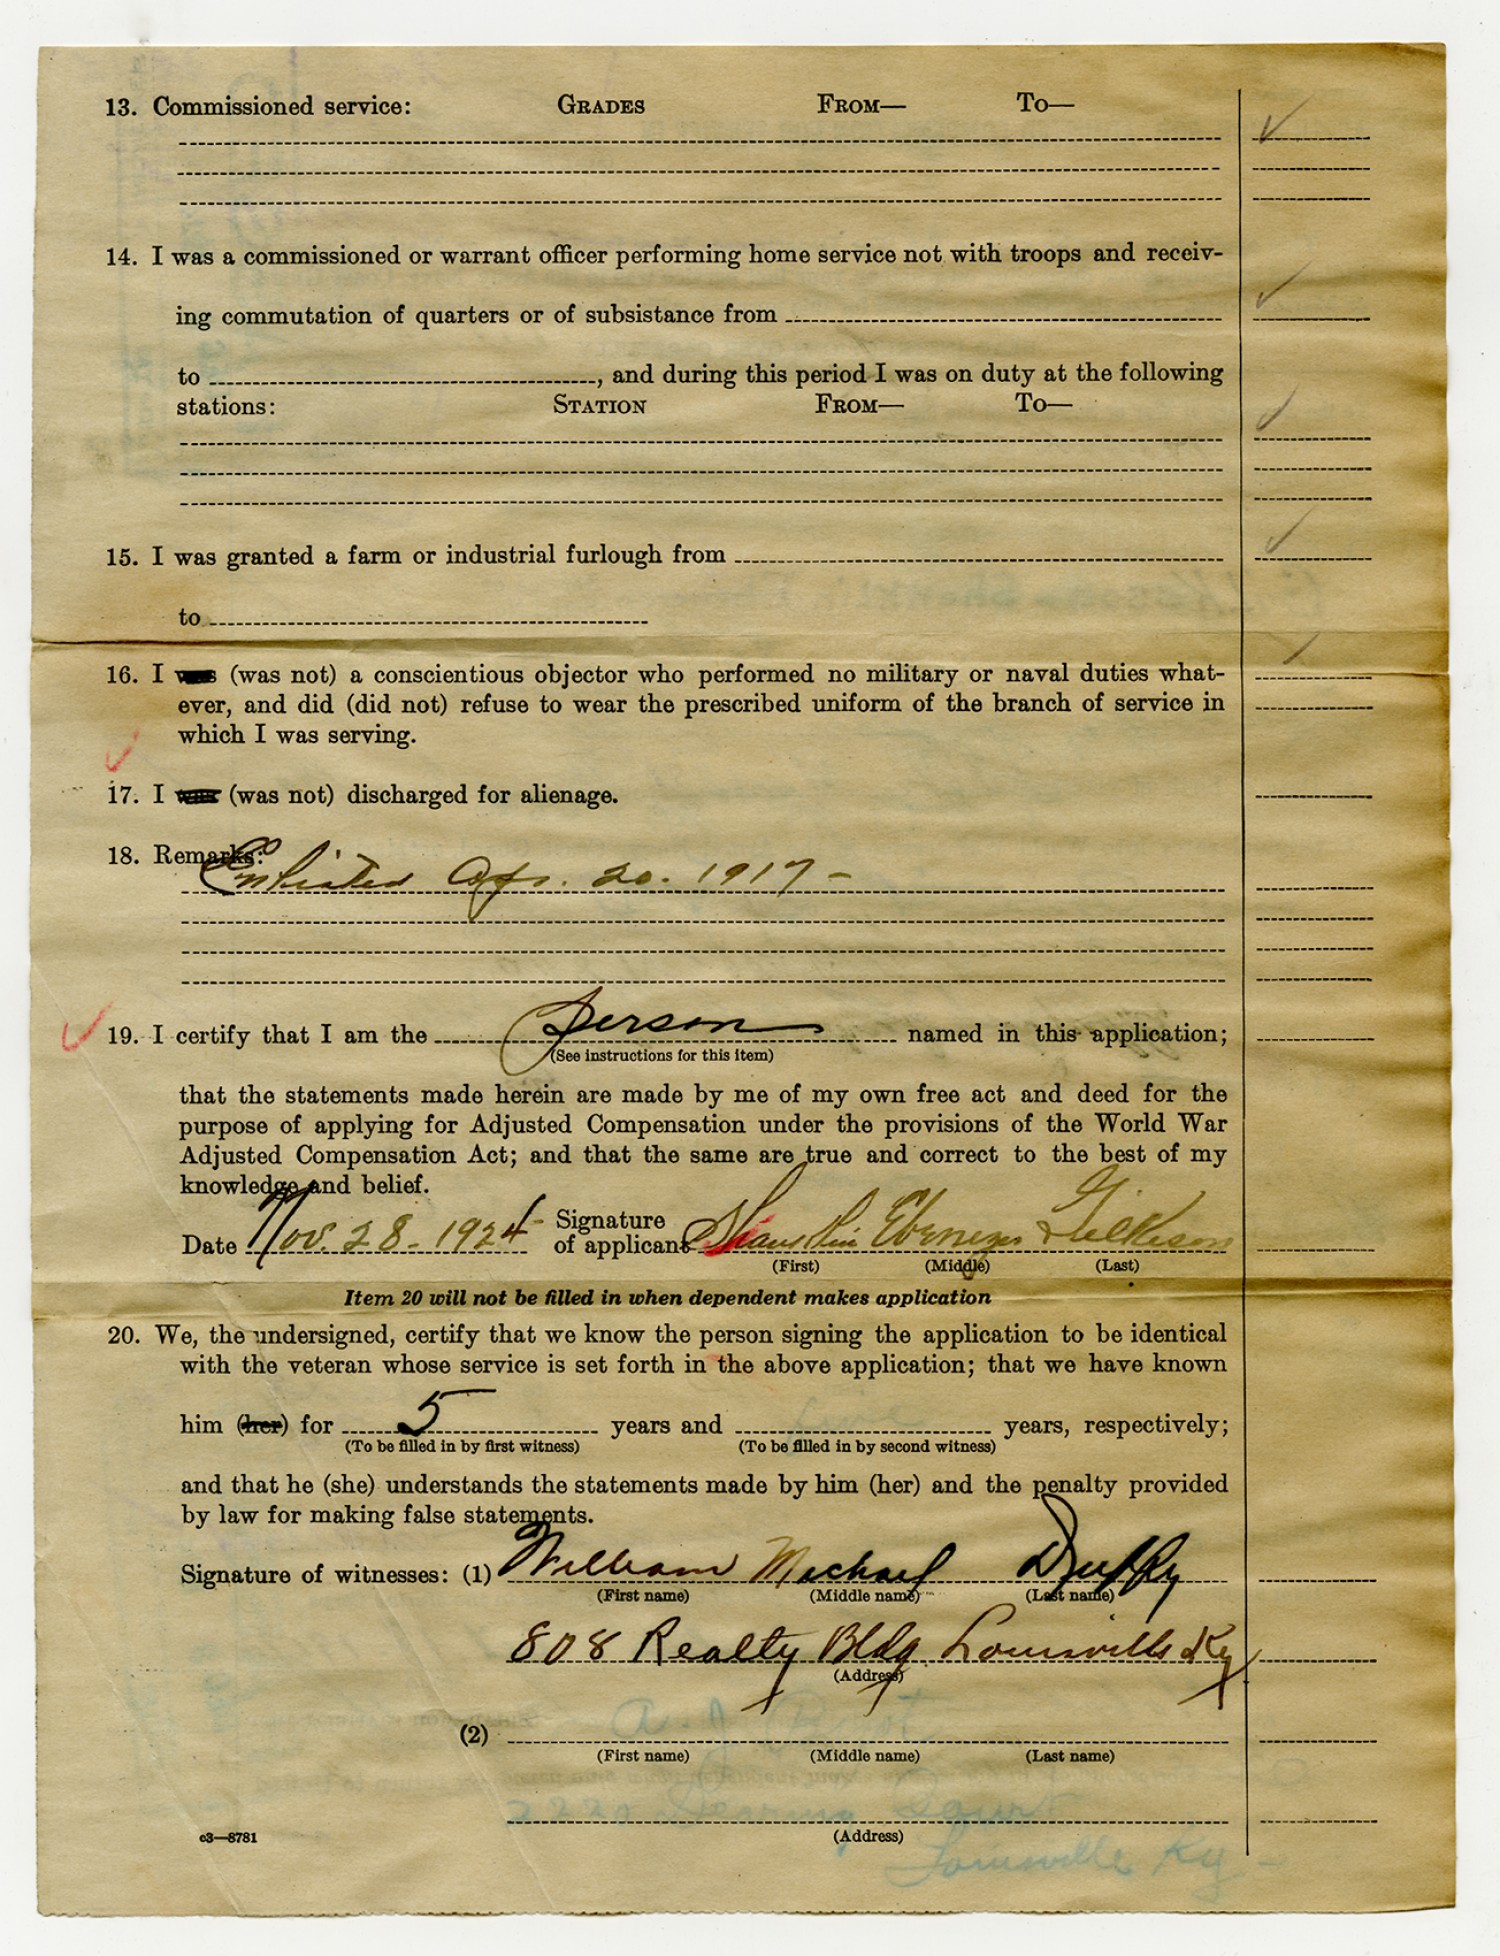 13. Commissioned service: GRADES FROM— TO—
14. I was a commissioned or warrant officer performing home service not with troops and receiv-
ing commutation of quarters or of subsistance from
to , and during this period I was on duty at the following
stations: STATION FROM— TO—
15. I was granted a farm or industrial furlough from
to
16. I was (was not) a conscientious objector who performed no military or naval duties what-
ever, and did (did not) refuse to wear the prescribed uniform of the branch of service in
which I was serving.
17. I was (was not) discharged for alienage.
18. Remarks:
Enlisted Apr. 20. 1917 -
19. I certify that I am the person named in this application;
(See instructions for this item)
that the statements made herein are made by me of my own free act and deed for the
purpose of applying for Adjusted Compensation under the provisions of the World War
Adjusted Compensation Act; and that the same are true and correct to the best of my
knowledge and belief.
Date Nov. 28 - 1924 Signature of applicant Ebenezer Gilkeson
(First) (Middle) (Last)
Item 20 will not be filled in when dependent makes application
20. We, the undersigned, certify that we know the person signing the application to be identical
with the veteran whose service is set forth in the above application; that we have known
him (her) for 5 years and five years, respectively;
(To be filled in by first witness) (To be filled in by second witness)
and that he (she) understands the statements made by him (her) and the penalty provided
by law for making false statements.
Signature of witnesses: (1) William Michael Duffy
(First name) (Middle name) (Last name)
808 Realty Bldg. Louisville Ky
(Address)
(2) A. J.
(First name) (Middle name) (Last name)
2220 Court
c3—8781 (Address)
Louisville Ky -